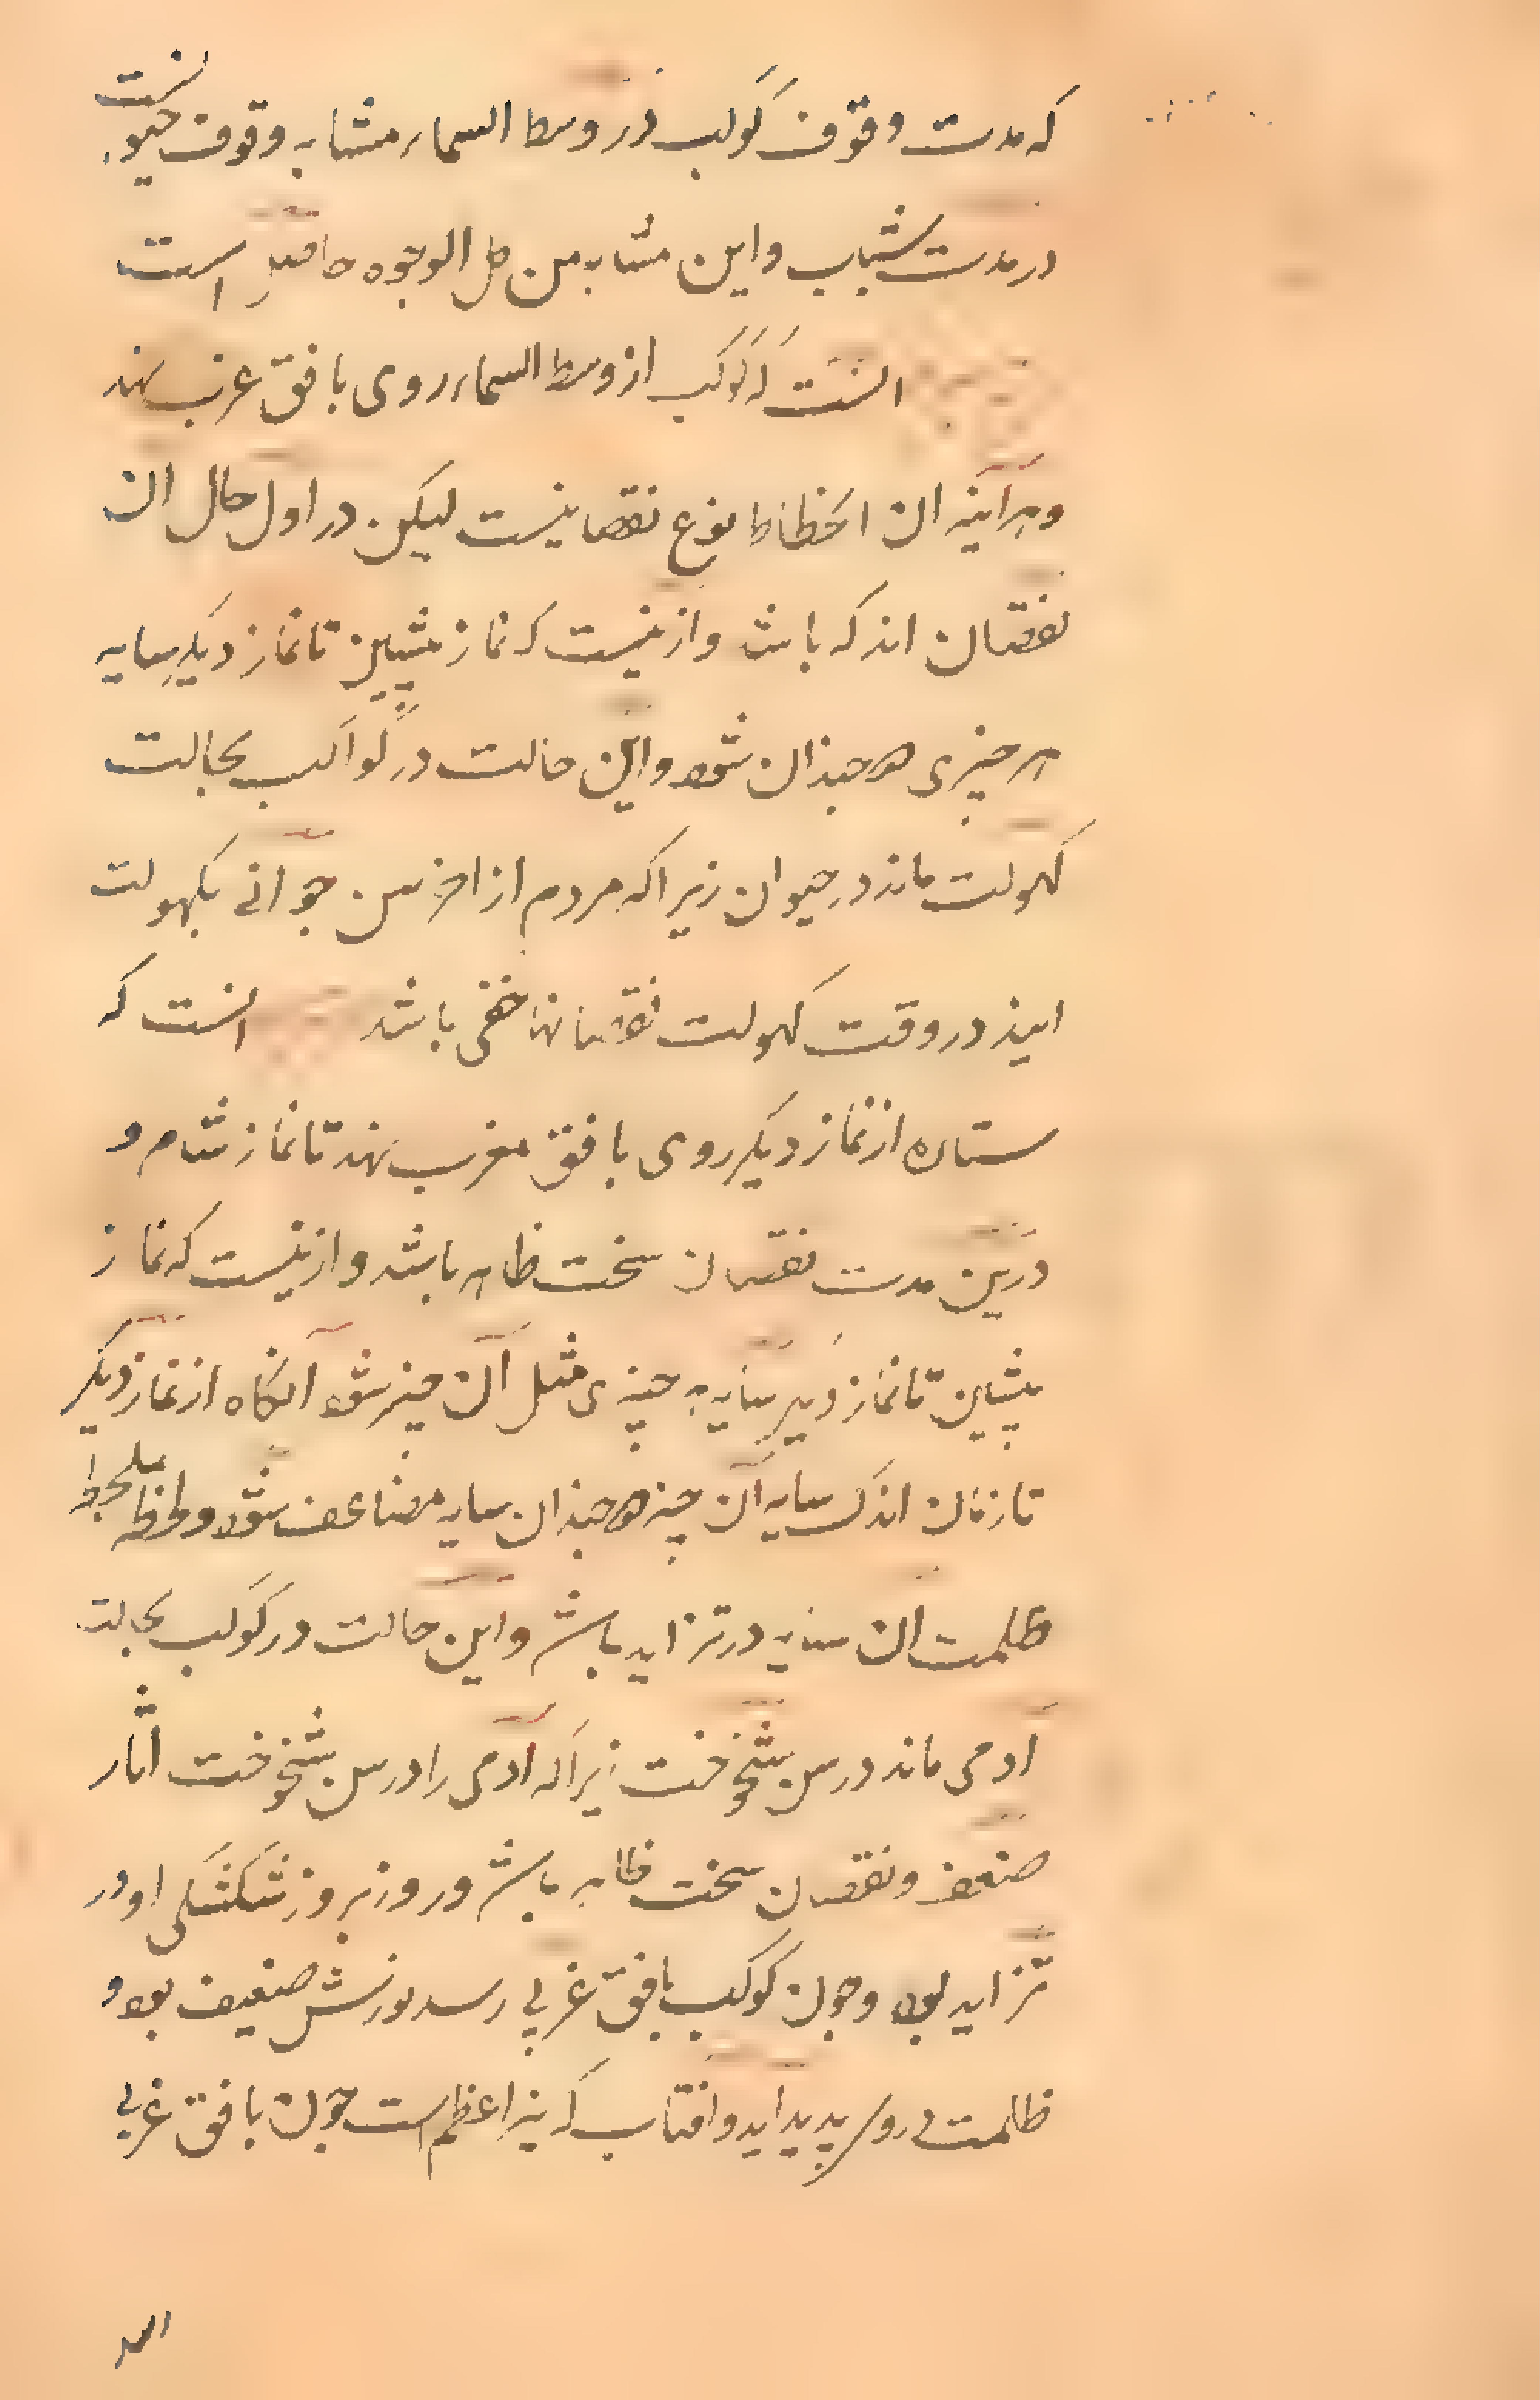 که مدت وقوف کوکب در وسط السماء مشابه وقوف حیوانست
در مدت شباب و این مشابه من کل الوجوه حاصل است
انست که کوکب از وسط السماء روی بافق غرب نهد
و هرآینه ان انحطاط نوع نقصانیست لیکن در اول حال ان
نقصان اندکه باشد و ازینست که نماز پیشین تا نماز دیکر سایه
هر چیزی هم چندان شود و این حالت در کواکب بحالت
کهولت ماند در حیوان زیرا که مردم از اخر سن جوانی بکهولت
ایند در وقت کهولت نقصانها خفی باشد انست که
ستاره از نماز دیکر روی بافق مغرب نهد تا نماز شام و
درین مدت نقصان سخت ظاهر باشد و ازینست که نماز
پیشین تا نماز دیکر سایه چیزی مثل آن چیز شود آنکاه از نماز دیکر
تا زمان اندک سایه آن چیز هم چندان سایه مضاعف شود و لحظه بلحظه
ظلمت ان سایه در تزاید باشد و این حالت در کوکب بحالت
آدمی ماند در سن شیخوخت زیرا که آدمی را در سن شیخوخت اثار
ضعف و نقصان سخت ظاهر باشد و روز بروز شکستکی او در
تزاید بود و چون کوکب بافق غربی رسد نورش ضعیف بود و
ظلمت در وی پدید اید و افتاب که نیر اعظم است چون بافق غربی